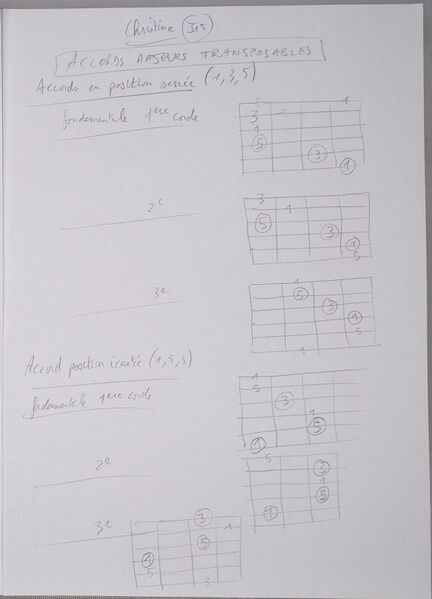 Christine
ACCORDS MAJEURS TRANSPOSABLES
Accords en position serrée (1,3,5)
fondamentale 1ere corde
1
3
1
5
3
1
2e
3
1
5
3
1
5
3e
1
5
3
1
5
1
Accord position écartée (1,5,3)
fondamentale 1ere corde
1
5
3
1
5
1
2e
5
3
1
5
1
3e
3
1
5
1
5
3